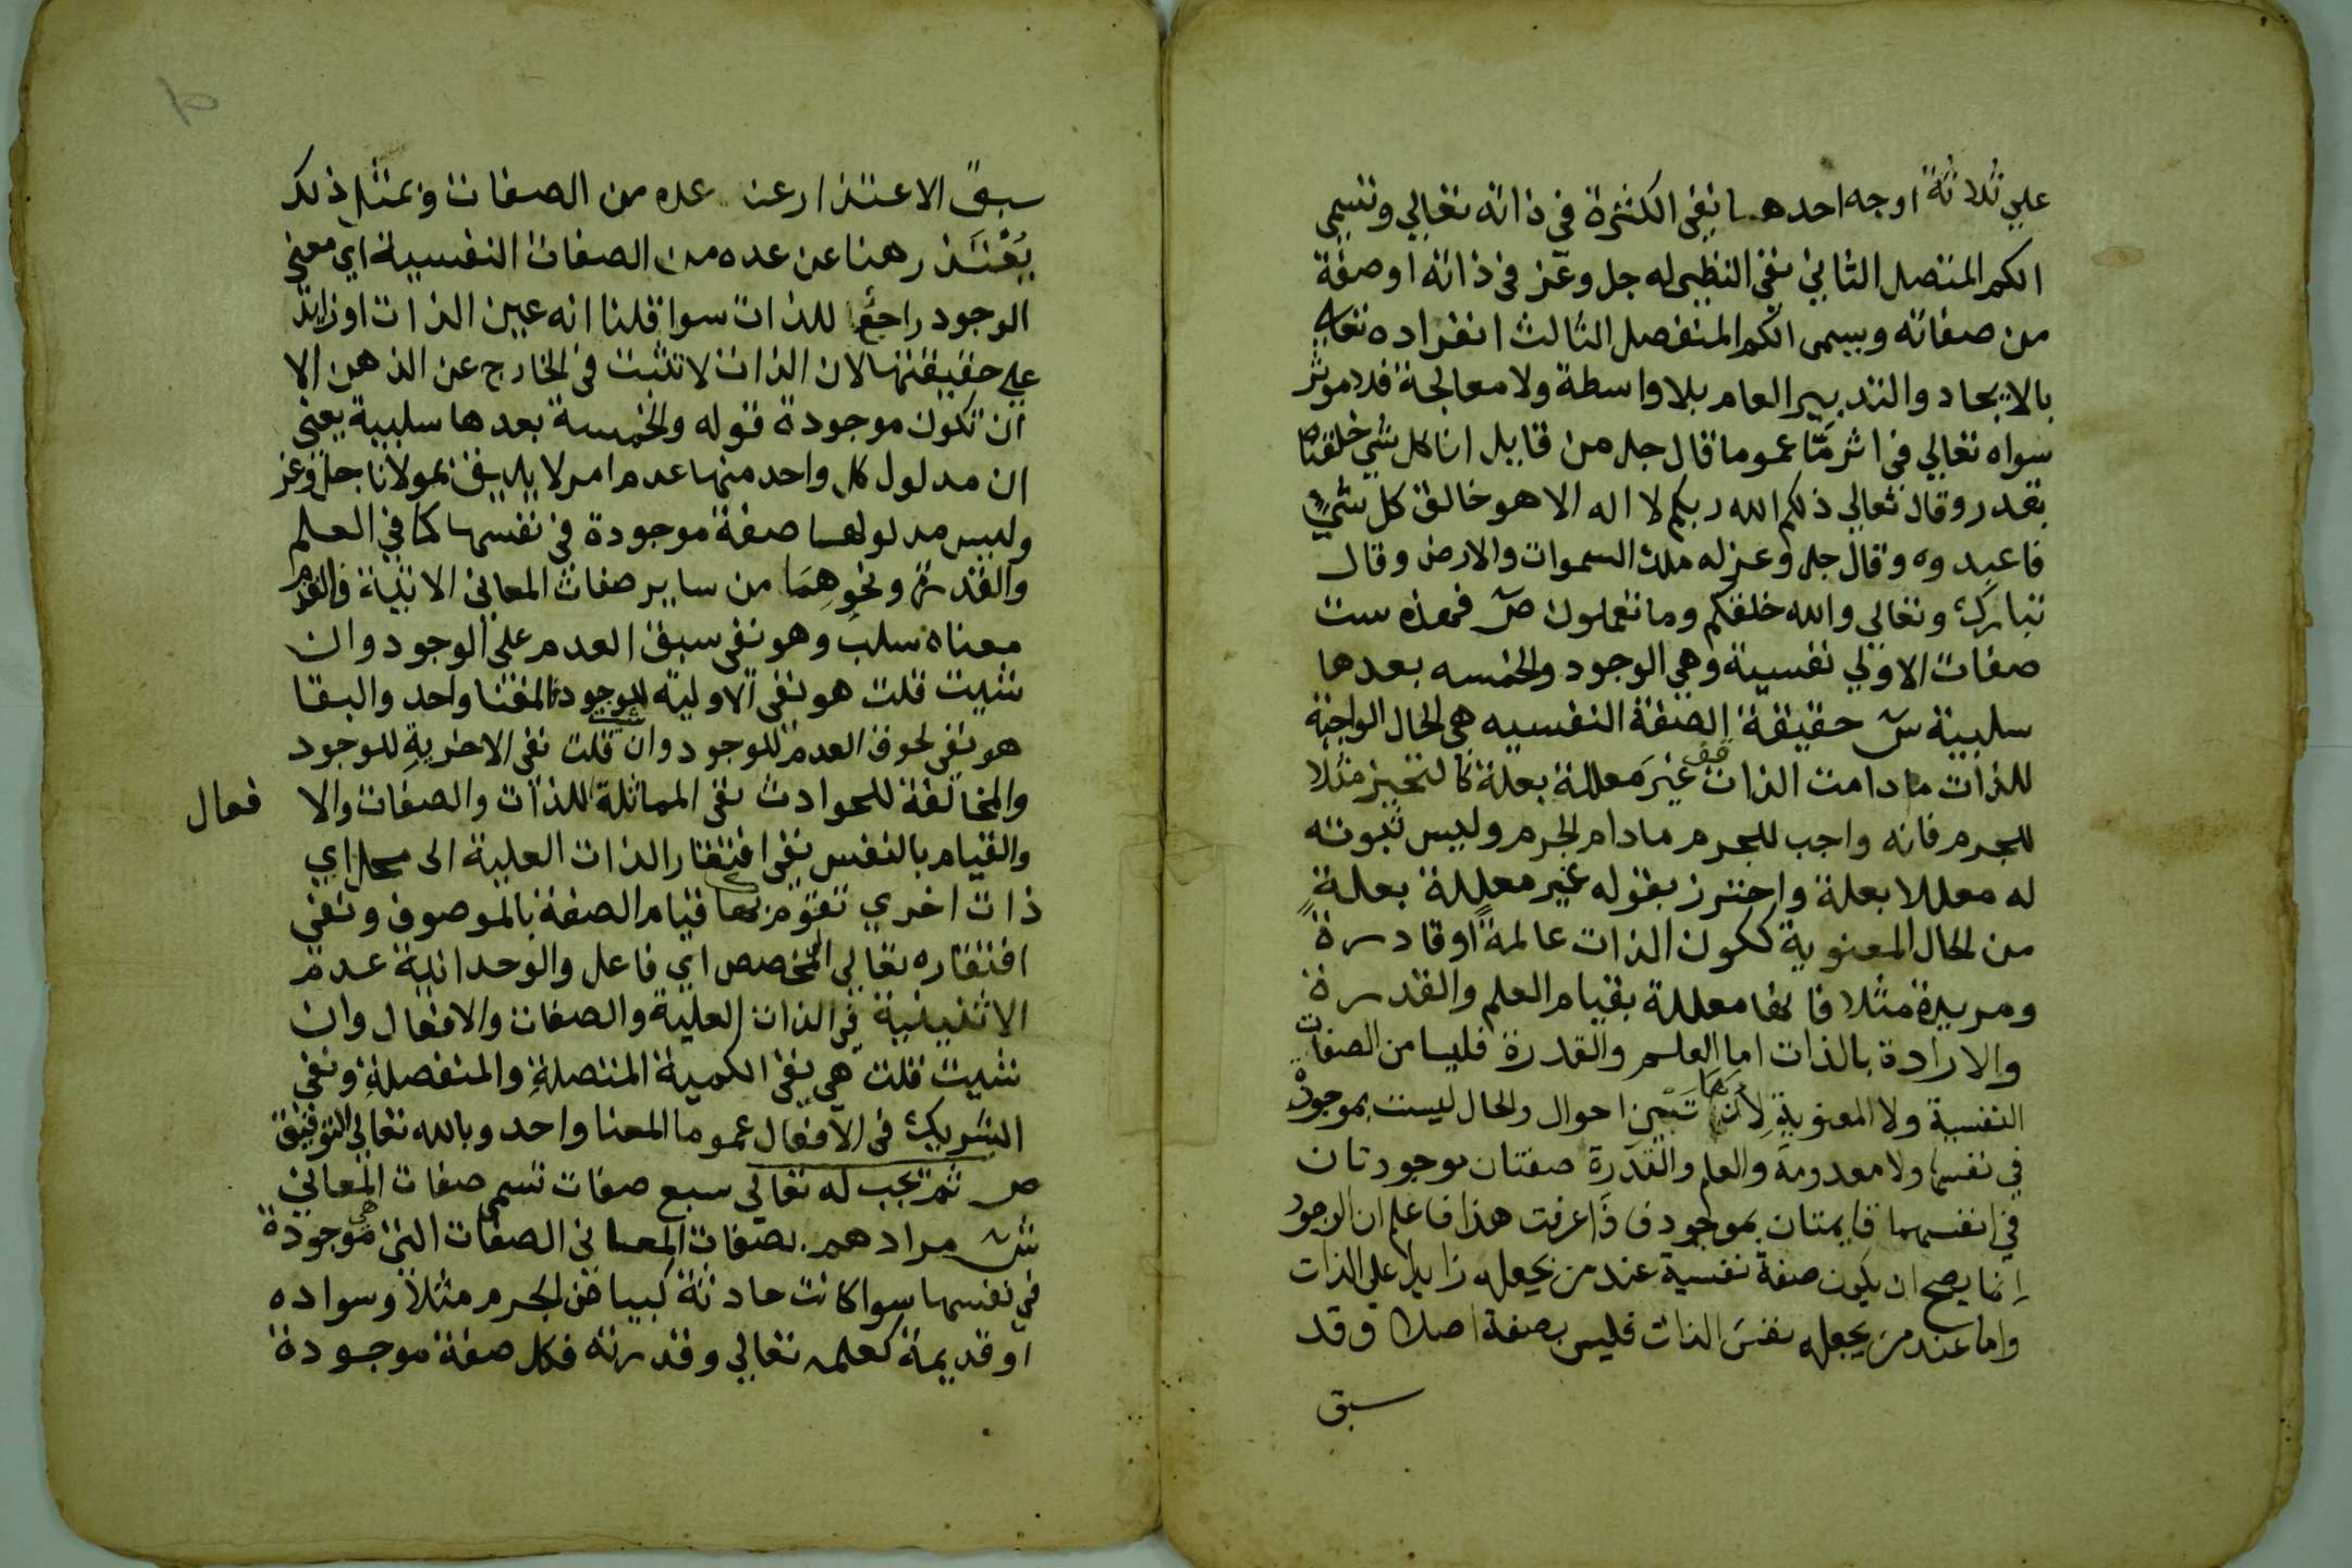 علي ثلاثة اوجه احدها نفي الكثرة في ذاته تعالي وتسمي
الكم المتصل الثاني نفي النظير له جل وعز في ذاته او صفة
من صفاته ويسمى الكم المنفصل الثالث انفراده تعالي
بالايجاد والتدبير العام بلا واسطة ولا معالجة فلا موثر
سواه تعالي في اثر مّا عموما قال جل من قايل انا كل شي خلقناه
بقدر وقال تعالي ذلكم الله ربكم لا اله الا هو خالق كل شيءٍ
فاعبدوه وقال جل وعز له ملك السموات والارض وقال
تبارك وتعالي والله خلقكم وما تعملون ص فهذه ست
صفات الاولي نفسية وهي الوجود والخمسه بعدها
سلبية ش حقيقة الصفة النفسيه هي الحال الواجبة
للذات ما دامت الذات غيرَ معللة بعلة كالتحيز مثلا
للجرم فانه واجب للجرم مادام الجرم وليس ثبوته
له معللا بعلة واحترز بقوله غير معللة بعلةٍ
من الحال المعنوية ككون الذات عالمةً او قادرة
ومريدة مثلا فانها معللة بقيام العلم والقدرة
والارادة بالذات اما العلم والقدرة فليسا من الصفات
النفسية ولا المعنوية لأنها احوال والحال ليست بموجودة
في نفسها ولا معدومة والعلم والقدرة صفتان موجودتان
في انفسهما قايمتان بموجود فاذا عرفت هذا فاعلم ان الوجود
انما يصح ان يكون صفة نفسية عند من يجعله زايدا على الذات
واما عند من يجعله نفسَ الذات فليس بصفة اصلا وقد
سبق
سبق الاعتذار عن عده من الصفات وبمثل ذلك
يُعْتَذر هنا عن عده من الصفات النفسية اي معني
الوجود راجعًا للذات سوا قلنا انه عين الذات او زايد
علي حقيقتها لان الذات لا تثبت في الخارج عن الذهن الا
ان تكون موجودة قوله والخمسة بعدها سلبية يعني
ان مدلول كل واحد منها عدم امر لا يليق بمولانا جل وعز
وليس مدلولها صفة موجودة في نفسها كما في العلم
والقدرة ونحوِهِمَا من ساير صفات المعاني الاتية فالقدم
معناه سلب وهو نفي سبق العدم على الوجود وان
شيت قلت هو نفي الاولية للوجود والمعنا واحد والبقا
هو نفي لحوق العدم للوجود وان شيت قلت نفي الاخرية للوجود
والمخالفة للحوادث نفي المماثلة للذات والصفات والا
فعال
والقيام بالنفس نفي افتقار الذات العلية الى محل اي
ذات اخري تقوم بها قيام الصفة بالموصوف ونفي
افتقاره تعالي الى المخصص اي فاعل والوحدانية عدم
الاثنينية في الذات العلية والصفات والافعال وان
شيت قلت هي نفي الكمية المتصلةِ والمنفصلةِ ونفي
الشريك في الافعال عموما المعنا واحد وبالله تعالي التوفيق
ص ثم يجب له تعالي سبع صفات تسمى صفات المعاني
ش مرادهم بصفات المعاني الصفات التي هي موجودة
في نفسها سوا كانت حادثة كبياض الجرم مثلا وسواده
او قديمة كعلمه تعالي وقدرته فكل صفة موجودة